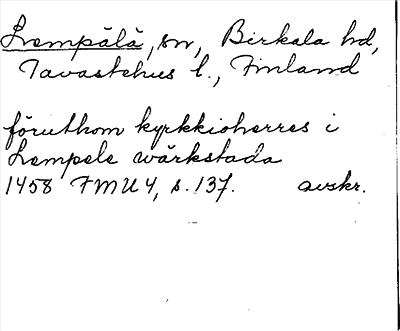 Lempälä, sn, Birkala hd,
Tavastehus l., Finland
föruthom kyrkkioherres i
Lempele wärkstada
1458 FMU 4, s. 137. avskr.